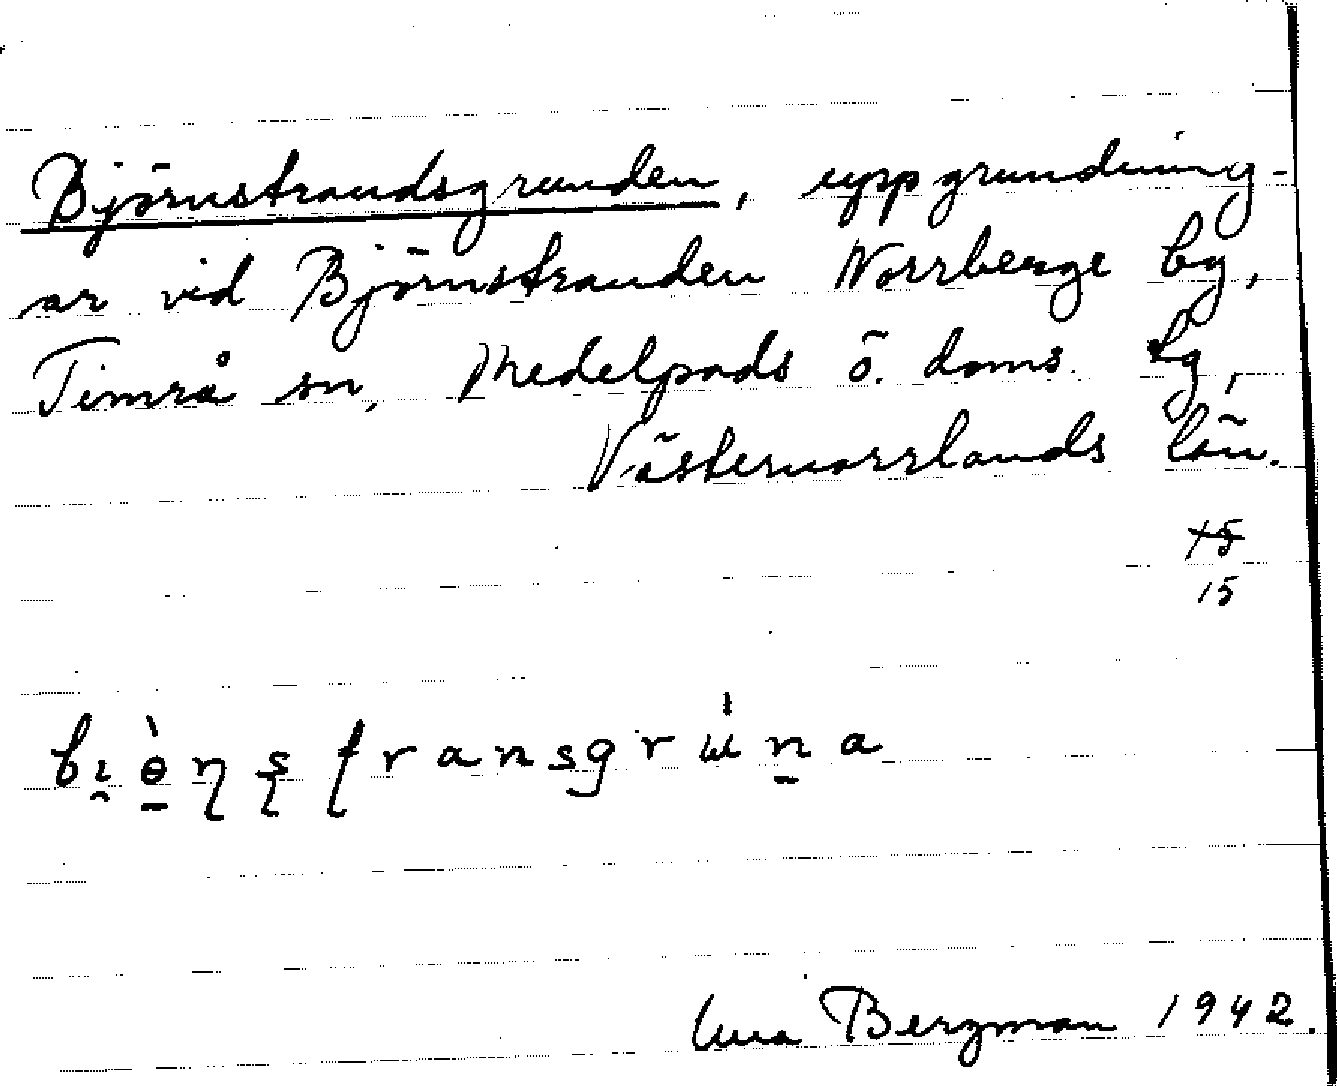 Björnstrandsgrunden, uppgrundning-
ar vid Björnstranden Norrberge by,
Timrå sn, Medelpads ö. doms. lg,
Västernorrlands län.
15
15
Bergman 1942.